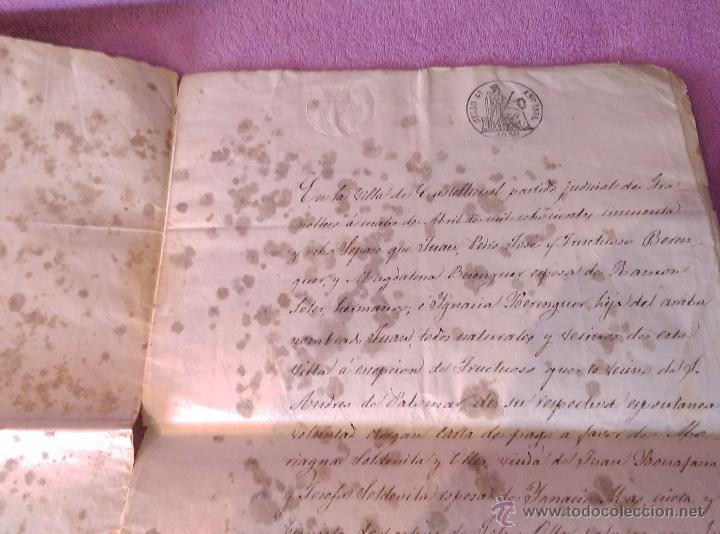 SELLO 4º AÑO 1858.
En la Villa de Castelltersol partido judicial de Gra-
nollers á nuebe de Abril de mil ochocientos cincuenta
y ocho Sepase que Juan, Pedro José y Fructuoso Beren-
guer, y Magdalena Berenguer esposa de Ramon
Soler hermanos, é Ignacia Berenguer hija del arriba
nombrado Juan, todos naturales y vecinos de esta
Villa á escepcion de Fructuoso que lo es de Sn
Andres de Palomar, de su respectiva espontanea
voluntad otorgan carta de pago a favor de Ma-
Soldevila y Oller, viuda de Juan
y Josefa Soldevila esposa de Ignacio Mas, nieta y
todocoleccion.net